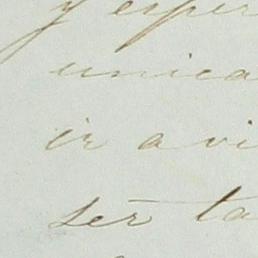 y esper
unica
ir a vi
ser ta